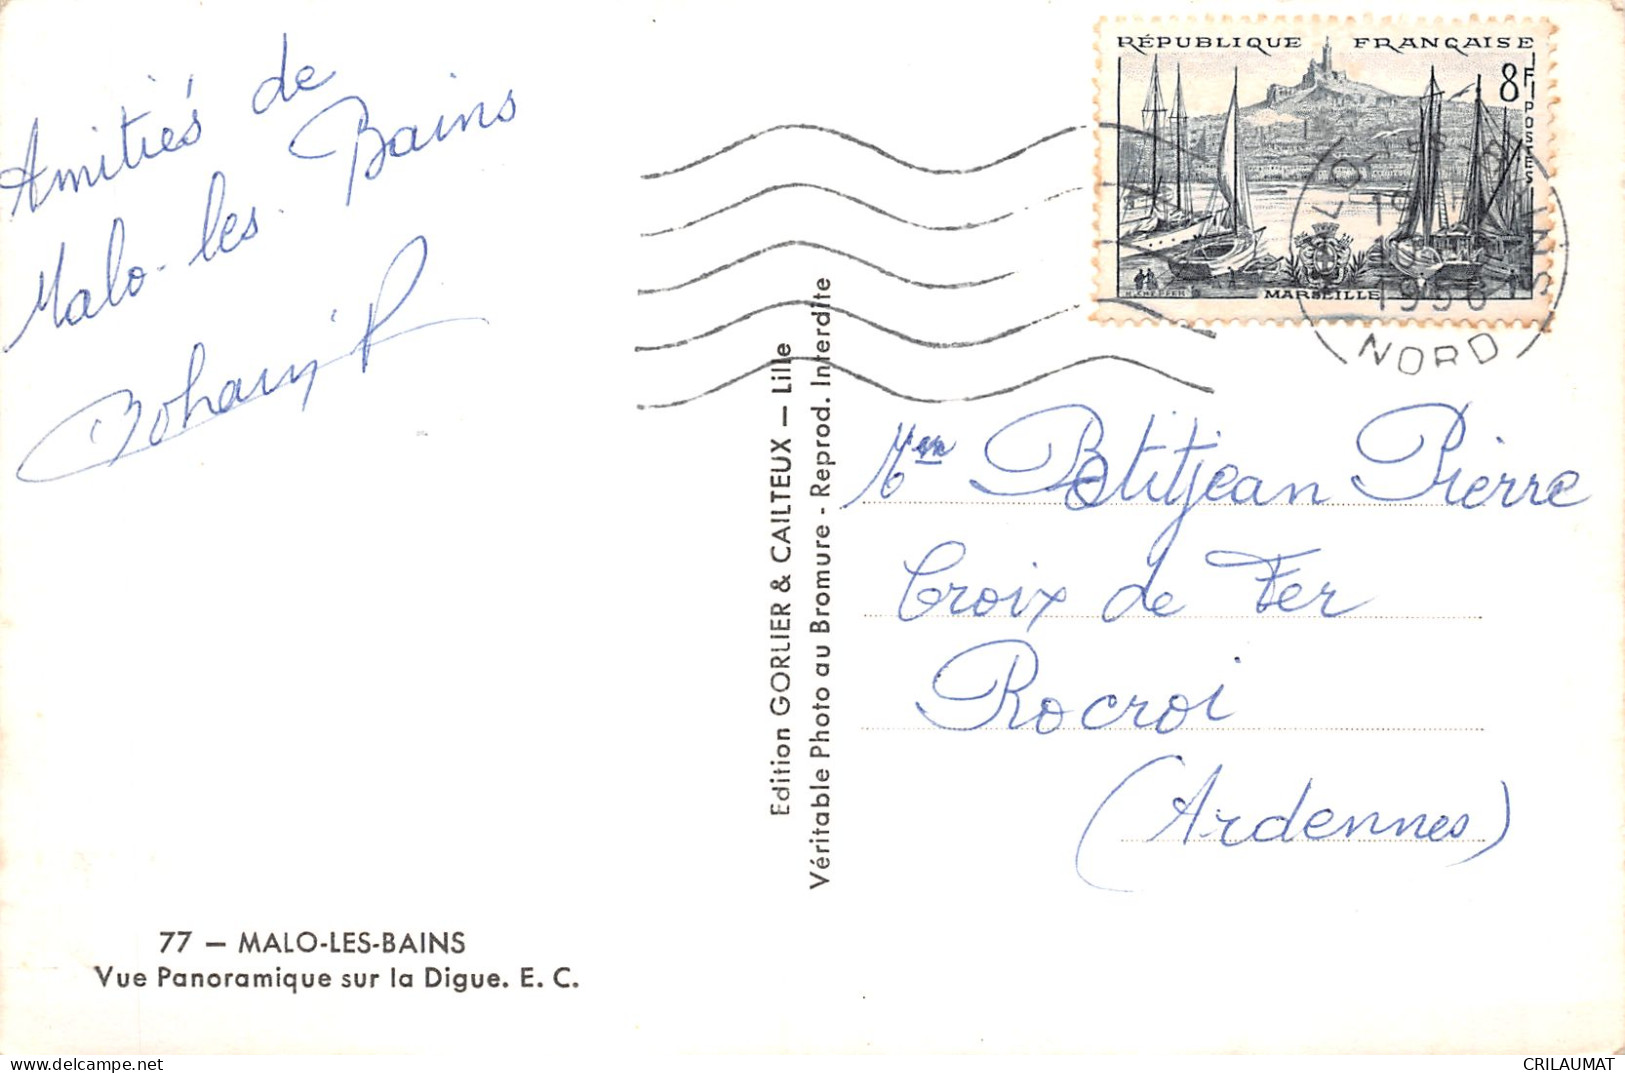 Amitiés de
Malo-les-Bains
RÉPUBLIQUE FRANÇAISE
8F
POSTES
MARSEILLE
NORD
Edition GORLIER & CAILTEUX — Lille
Véritable Photo au Bromure - Reprod. Interdite
Petitjean Pierre
Croix de Fer
Rocroi
(Ardennes)
77 — MALO-LES-BAINS
Vue Panoramique sur la Digue. E. C.
CRILAUMAT